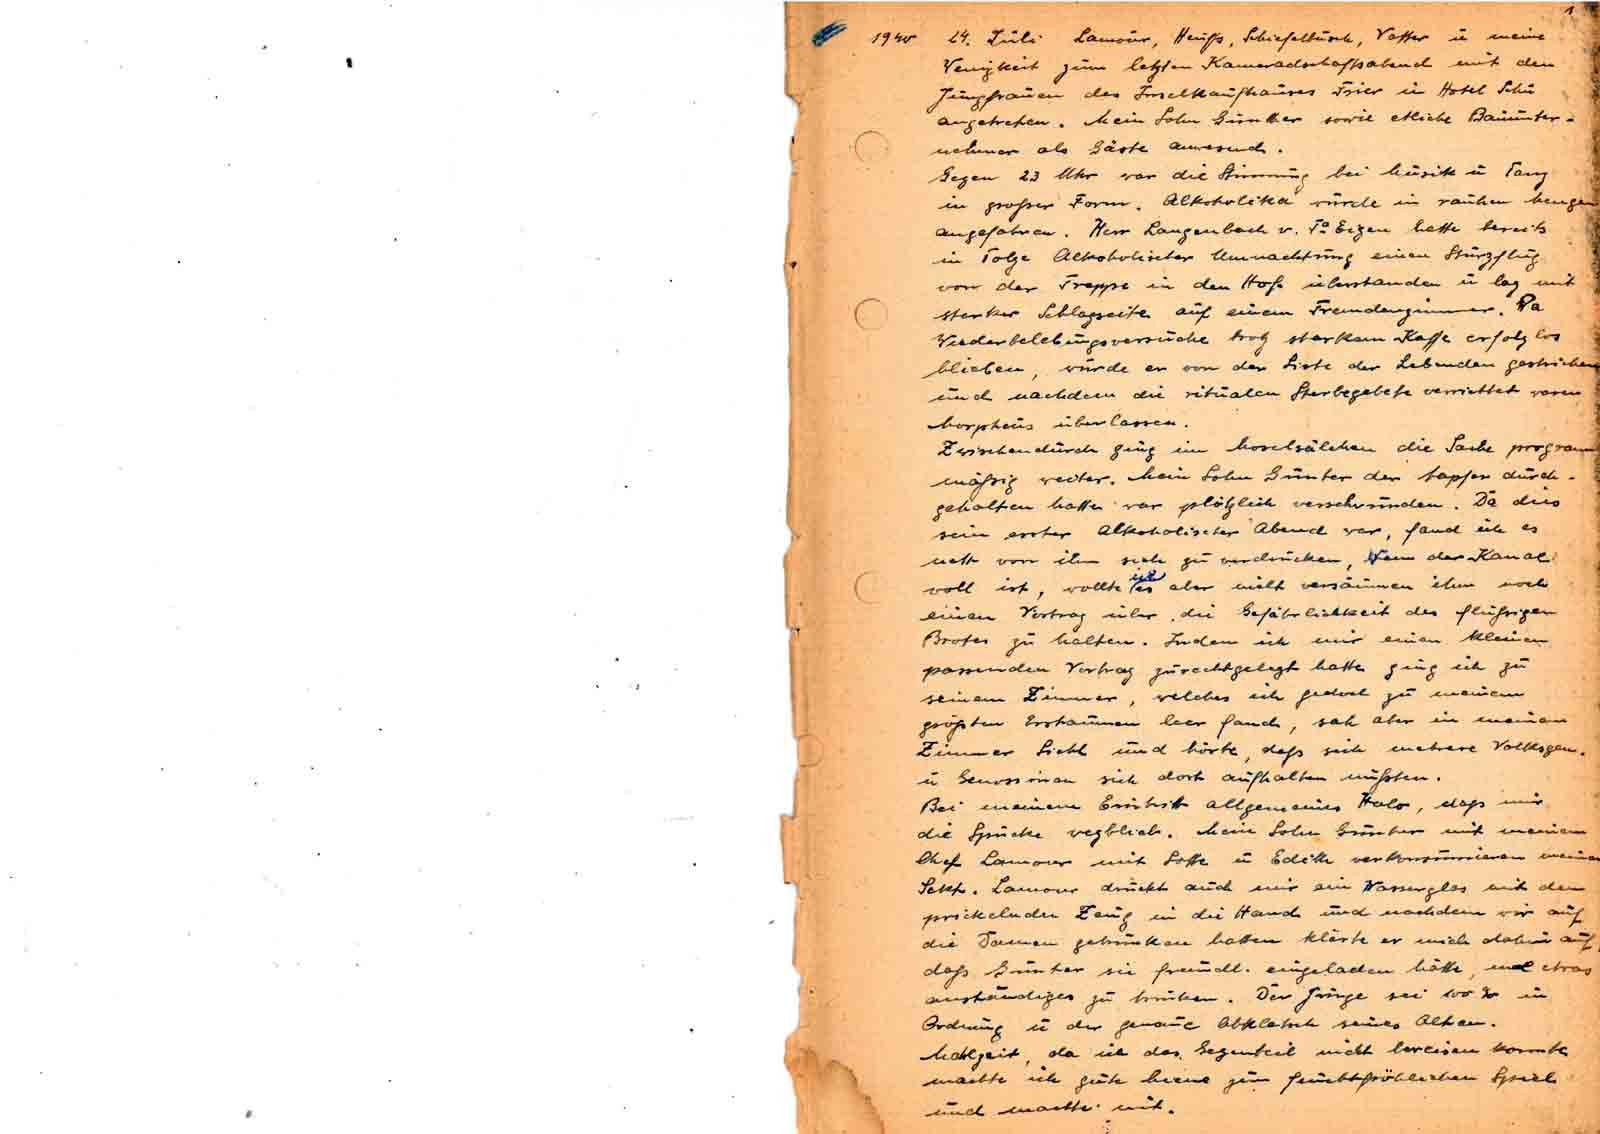 1
1940 24. Juli Lamour, Heuß, Schiefelbusch, Vatter u meine
Wenigkeit zum letzten Kameradschaftsabend mit den
Jungfrauen des Inselkaufhauses Trier in Hotel Schu
angetreten. Mein Sohn Günther sowie etliche Bauunter-
nehmer als Gäste anwesend.
Gegen 23 Uhr war die Stimmung bei Musik u Tanz
in großer Form. Alkoholika wurde in rauhen Mengen
angefahren. Herr Langenbach v. Fa Eigen hatte bereits
in Folge Alkoholischer Umnachtung einen Sturzflug
von der Treppe in den Hof überstanden u lag mit
starker Schlagseite auf einem Fremdenzimmer. Da
Wiederbelebungsversuche trotz starkem Kaffe erfolglos
blieben, wurde er von der Liste der Lebenden gestrichen
und nachdem die ritualen Sterbegebete verrichtet waren
Morpheus überlassen.
Zwischendurch ging im Moselsälchen die Sache program
mäßig weiter. Mein Sohn Günter der tapfer durch-
gehalten hatte war plötzlich verschwunden. Da dies
sein erster Alkoholischer Abend war, fand ich es
nett von ihm sich zu verdrücken, Wenn der Kanal
voll ist, wollte ich es aber nicht versäumen ihm noch
einen Vortrag über die Gefährlichkeit des flüßigen
Brotes zu halten. Indem ich mir einen kleinen
passenden Vortrag zurechtgelegt hatte ging ich zu
seinem Zimmer, welches ich jedoch zu meinem
größten Erstaunen leer fand, sah aber in meinem
Zimmer Licht und hörte, daß sich mehrere Volksgen.
u Genossinen sich dort aufhalten mußten.
Bei meinem Eintritt allgemeines Halo, daß mir
die Spucke wegblieb. Mein Sohn Günter mit meinem
Chef Lamour mit Lotte u Edith verkonsumieren meinen
Sekt. Lamour drückt auch mir ein Wasserglas mit dem
prickelnden Zeug in die Hand und nachdem wir auf
die Damen getrunken hatten klärte er mich dahin auf
daß Günter sie freundl. eingeladen hätte, mal etwas
anständiges zu trinken. Der Junge sei 100 % in
Ordnung u der genaue Abklatsch seines Alten.
Mahlzeit, da ich das Gegenteil nicht beweisen konnte
machte ich gute Miene zum feuchtfröhlichen Spiel
und machte mit.